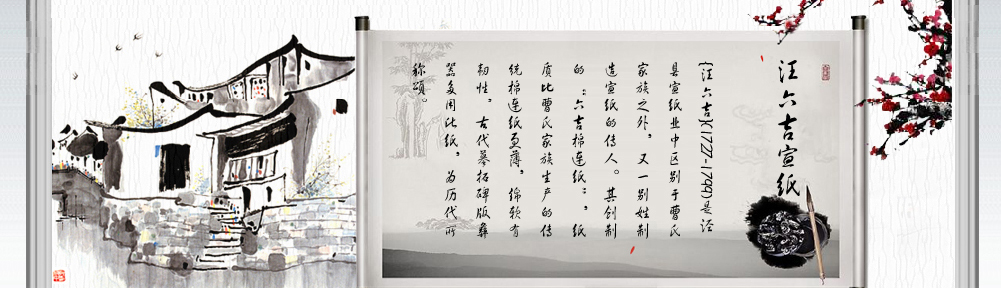 汪六吉宣纸
{汪六吉}(1727-1799)是泾
县宣纸业中区别于曹氏
家族之外，又一别姓制
造宣纸的传人。其创制
的“六吉棉连纸”，纸
质比曹氏家族生产的传
统棉连纸更薄，绵软有
韧性，古代摹拓碑版彝
器多用此纸，为历代所
称颂。